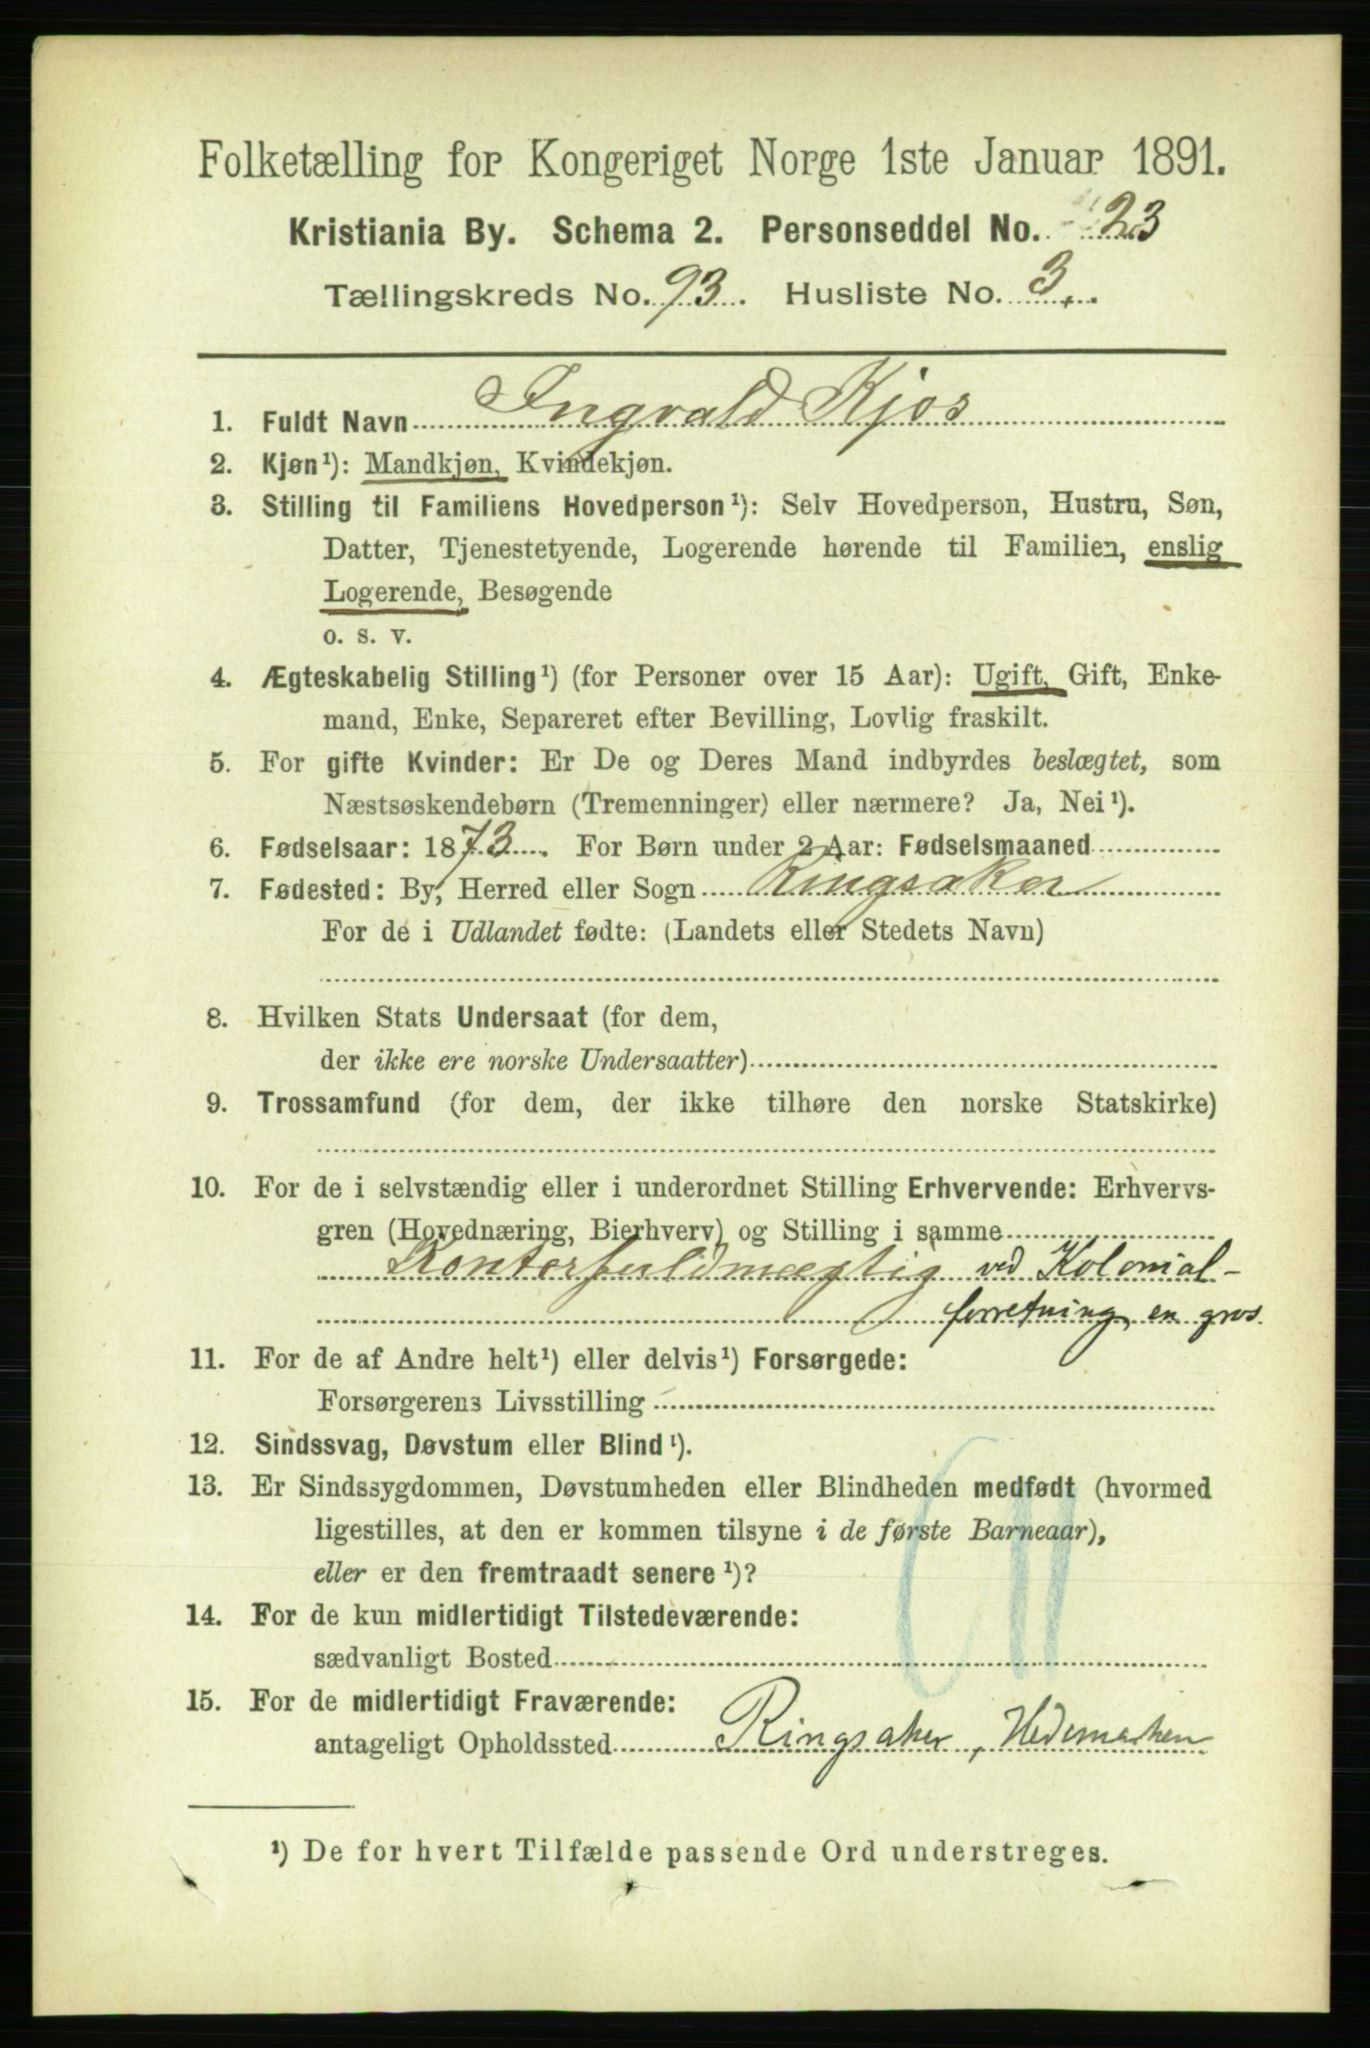 Folketælling for Kongeriget Norge 1ste Januar 1891.
Kristiania By. Schema 2. Personseddel No. 23
Tællingskreds No. 93. Husliste No. 3.
1. Fuldt Navn Ingvald Kjos
2. Kjøn¹): Mandkjøn, Kvindekjøn.
3. Stilling til Familiens Hovedperson¹): Selv Hovedperson, Hustru, Søn,
Datter, Tjenestetyende, Logerende hørende til Familien, enslig
Logerende, Besøgende
o. s. v.
4. Ægteskabelig Stilling¹) (for Personer over 15 Aar): Ugift, Gift, Enke-
mand, Enke, Separeret efter Bevilling, Lovlig fraskilt.
5. For gifte Kvinder: Er De og Deres Mand indbyrdes beslægtet, som
Næstsøskendebørn (Tremenninger) eller nærmere? Ja, Nei¹).
6. Fødselsaar: 1873. For Børn under 2 Aar: Fødselsmaaned
7. Fødested: By, Herred eller Sogn Ringsaker
For de i Udlandet fødte: (Landets eller Stedets Navn)
8. Hvilken Stats Undersaat (for dem,
der ikke ere norske Undersaatter)
9. Trossamfund (for dem, der ikke tilhøre den norske Statskirke)
10. For de i selvstændig eller i underordnet Stilling Erhvervende: Erhvervs-
gren (Hovednæring, Bierhverv) og Stilling i samme
Kontorfuldmægtig ved Kolonial-
forretning en gros.
11. For de af Andre helt¹) eller delvis¹) Forsørgede:
Forsørgerens Livsstilling
12. Sindssvag, Døvstum eller Blind¹).
13. Er Sindssygdommen, Døvstumheden eller Blindheden medfødt (hvormed
ligestilles, at den er kommen tilsyne i de første Barneaar),
eller er den fremtraadt senere¹)?
14. For de kun midlertidigt Tilstedeværende:
sædvanligt Bosted
15. For de midlertidigt Fraværende:
antageligt Opholdssted Ringsaker, Hedemarken
¹) De for hvert Tilfælde passende Ord understreges.